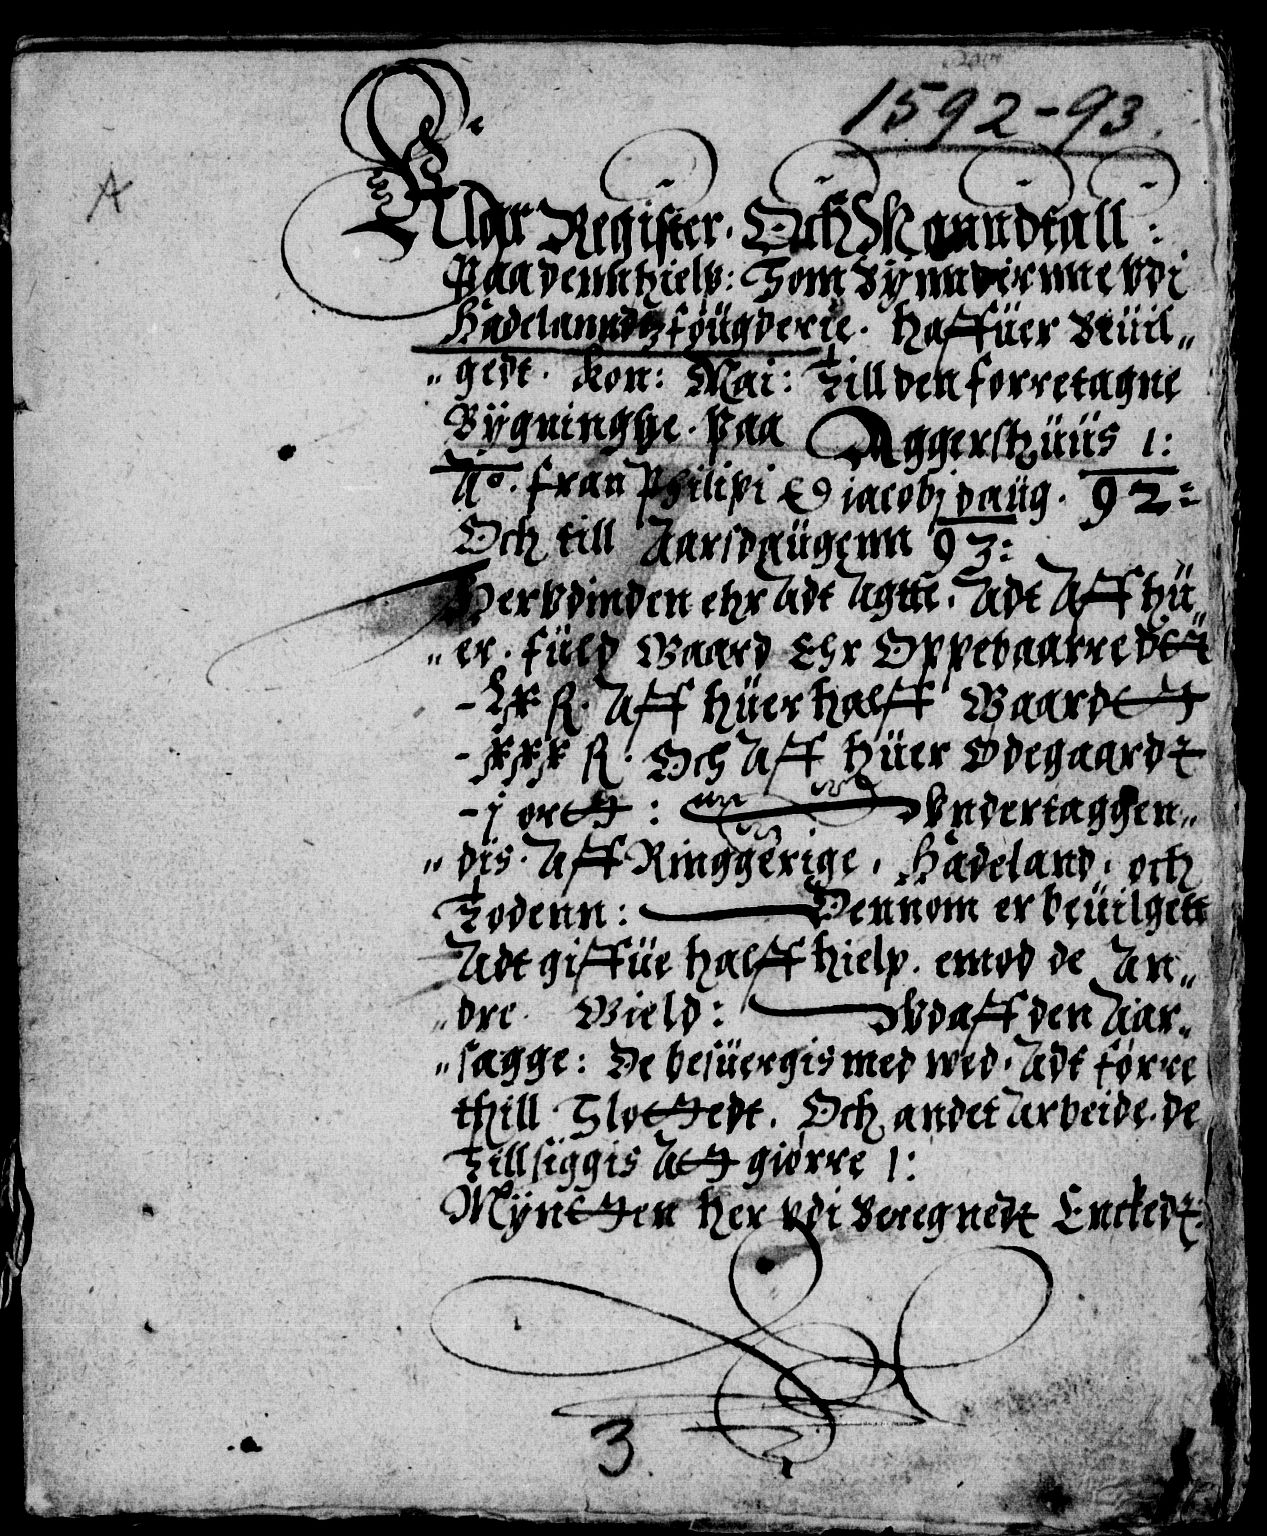 1592-93.
A
Klar Register. Och Manndtall:
Paa denn hielp: Som Bÿnndernne vdi
Hadelanndtz föügderie. haffüer beüil„
„gedt. Kon: Mai: till den forretagne
Bÿgninghe. paa Aggerszhüüs 1:
Ao. fran Philipi & jacobi daüg. 92:
Och till Aarsdaügenn 93:
Hervdinden ehr Adt Agtte. Adt Aff hü„
„er. füld Gaard Ehr Oppebaarredtt
- Lx ß. Aff hüer halff Gaardtt
- xxx ß. Och Aff hüer Ödegaardt
- j ortt: Vndertaggen„
„dis. Aff Ringgerige, Hadeland, och
Todenn: Dennom er beüilgett
Adt giffüe halff hielp. emod de An„
„dre Gield: vdaff den Aar„
„sagge: De besüergis med wed. Adt förre
thill Slottedt. Och andet Arbeide. de
Tillsiggis Att giörre 1:
Mÿntten her vdi beregnedt Enckedt:
3